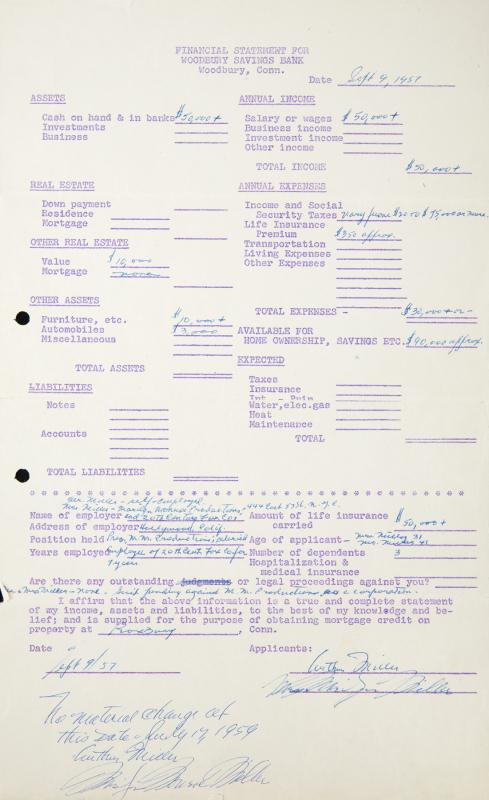 FINANCIAL STATEMENT FOR
WOODBURY SAVINGS BANK
Woodbury, Conn.
Date Sept 9, 1957
ASSETS
Cash on hand & in banks $50,000+
Investments
Business
REAL ESTATE
Down payment
Residence
Mortgage
OTHER REAL ESTATE
Value $10,000
Mortgage none
OTHER ASSETS
Furniture, etc. $10,000+
Automobiles $3,000
Miscellaneous
TOTAL ASSETS
LIABILITIES
Notes
Accounts
TOTAL LIABILITIES
ANNUAL INCOME
Salary or wages $50,000+
Business income
Investment income
Other income
TOTAL INCOME $50,000+
ANNUAL EXPENSES
Income and Social
Security Taxes vary from to or more.
Life Insurance
Premium $350 approx.
Transportation
Living Expenses
Other Expenses
TOTAL EXPENSES - $30,000 + or -
AVAILABLE FOR
HOME OWNERSHIP, SAVINGS ETC. $90,000 approx.
EXPECTED
Taxes
Insurance
Int - Prin
Water, elec. gas
Heat
Maintenance
TOTAL
Mr Miller - self-employed
Mrs Miller - Marilyn Monroe Productions, 444 East 57 St. N.Y.C.
Name of employer and 20th Century Fox Cor.
Address of employer Hollywood, Calif.
Position held Pres. M.M. Productions,
Years employed Employee of 20th Cent. Fox Co for
7 years
Amount of life insurance
carried $50,000+
Age of applicant - Mrs. Miller 31
Mr. Miller 41
Number of dependents 3
Hospitalization &
medical insurance
Are there any outstanding judgments or legal proceedings against you?
Mrs Miller - none. Suit pending against M. M. Productions, a corporation.
I affirm that the above information is a true and complete statement
of my income, assets and liabilities, to the best of my knowledge and be-
lief; and is supplied for the purpose of obtaining mortgage credit on
property at Roxbury, Conn.
Date Applicants:
Sept 9/57 Arthur Miller
Miller
No material change at
this date - July 17, 1959
Arthur Miller
Monroe Miller